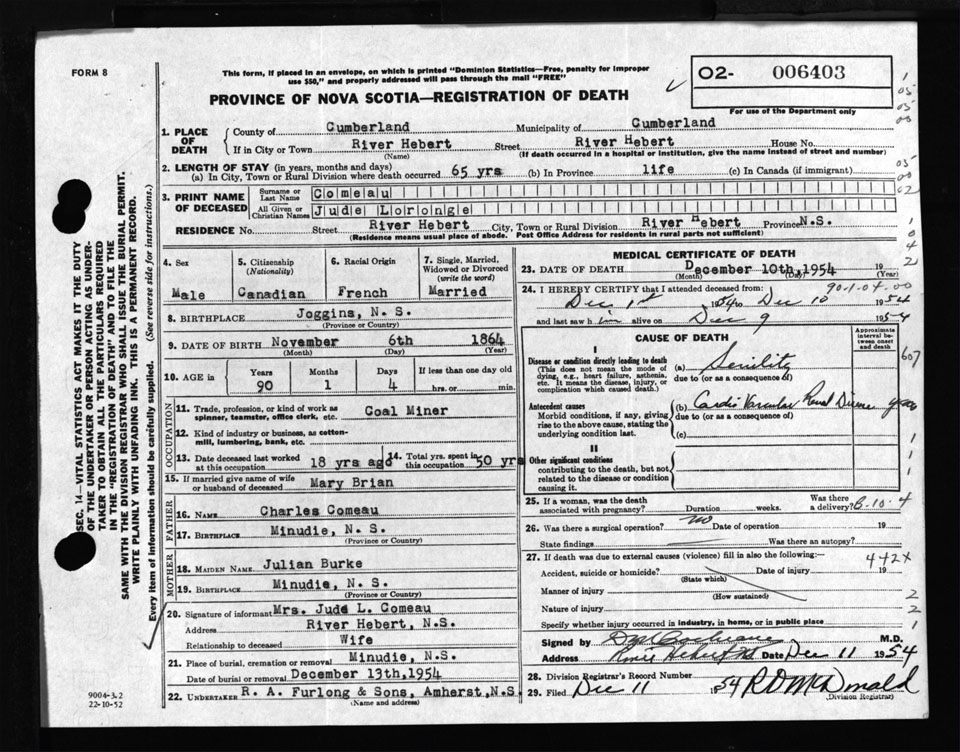 FORM 8
This form, if placed in an envelope, on which is printed "Dominion Statistics—Free, penalty for improper
use $50," and properly addressed will pass through the mail "FREE"
PROVINCE OF NOVA SCOTIA—REGISTRATION OF DEATH
02- 006403
For use of the Department only
1. PLACE OF DEATH
County of Cumberland Municipality of Cumberland
If in City or Town River Hebert Street River Hebert House No.
(Name) (If death occurred in a hospital or institution, give the name instead of street and number)
2. LENGTH OF STAY (in years, months and days)
(a) In City, Town or Rural Division where death occurred 65 yrs (b) In Province life (c) In Canada (if immigrant)
3. PRINT NAME OF DECEASED
Surname or Last Name Comeau
All Given or Christian Names Jude Loronge
RESIDENCE No. Street River Hebert City, Town or Rural Division River Hebert Province N.S.
(Residence means usual place of abode. Post Office Address for residents in rural parts not sufficient)
4. Sex Male
5. Citizenship (Nationality) Canadian
6. Racial Origin French
7. Single, Married, Widowed or Divorced (write the word) Married
8. BIRTHPLACE Joggins, N. S.
(Province or Country)
9. DATE OF BIRTH November 6th 1864
(Month) (Day) (Year)
10. AGE in Years 90 Months 1 Days 4 If less than one day hrs. or min.
OCCUPATION
11. Trade, profession, or kind of work as spinner, teamster, office clerk, etc. Coal Miner
12. Kind of industry or business, as cotton-mill, lumbering, bank, etc.
13. Date deceased last worked at this occupation 18 yrs ago
14. Total yrs. spent in this occupation 50 yrs
15. If married give name of wife or husband of deceased Mary Brian
FATHER
16. NAME Charles Comeau
17. BIRTHPLACE Minudie, N. S.
(Province or Country)
MOTHER
18. MAIDEN NAME Julian Burke
19. BIRTHPLACE Minudie, N. S.
(Province or Country)
20. Signature of informant Mrs. Jude L. Comeau
Address River Hebert, N.S.
Relationship to deceased Wife
21. Place of burial, cremation or removal Minudie, N.S.
Date of burial or removal December 13th, 1954
22. UNDERTAKER R. A. Furlong & Sons, Amherst, N.S.
(Name and address)
MEDICAL CERTIFICATE OF DEATH
23. DATE OF DEATH December 10th, 1954 19
(Month) (Day) (Year)
24. I HEREBY CERTIFY that I attended deceased from: 90-1-04-00
Dec 1st 1954 to Dec 10 1954
and last saw h im alive on Dec 9 1954
CAUSE OF DEATH
Approximate interval between onset and death
I
Disease or condition directly leading to death
(This does not mean the mode of dying, e.g., heart failure, asthenia, etc. It means the disease, injury, or complication which caused death.)
(a) Senility 607
due to (or as a consequence of)
Antecedent causes
Morbid conditions, if any, giving rise to the above cause, stating the underlying condition last.
(b) Cardio Vascular Renal Disease years
due to (or as a consequence of)
(c)
II
Other significant conditions
contributing to the death, but not related to the disease or condition causing it.
25. If a woman, was the death associated with pregnancy? Duration weeks. Was there a delivery? B-10-4
26. Was there a surgical operation? no Date of operation 19
State findings Was there an autopsy?
27. If death was due to external causes (violence) fill in also the following:— 442X
Accident, suicide or homicide? Date of injury 19
(State which)
Manner of injury
(How sustained)
Nature of injury
Specify whether injury occurred in industry, in home, or in public place
Signed by Cochrane M.D.
Address River Hebert NS Date Dec 11 1954
28. Division Registrar's Record Number
29. Filed Dec 11 1954 R D McDonald
(Division Registrar)
SEC. 14—VITAL STATISTICS ACT MAKES IT THE DUTY
OF THE UNDERTAKER OR PERSON ACTING AS UNDER-
TAKER TO OBTAIN ALL THE PARTICULARS REQUIRED
IN THE "REGISTRATION OF DEATH" AND TO FILE THE
SAME WITH THE DIVISION REGISTRAR WHO SHALL ISSUE THE BURIAL PERMIT.
WRITE PLAINLY WITH UNFADING INK. THIS IS A PERMANENT RECORD.
Every item of information should be carefully supplied. (See reverse side for instructions.)
9004-3.2
22-10-52